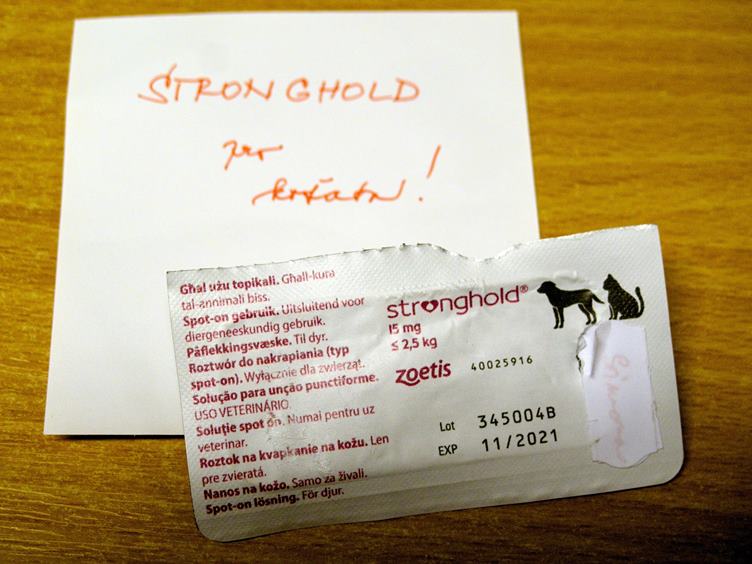 STRONGHOLD
pro
koťata!
Għal użu topikali. Għall-kura
tal-annimali biss.
Spot-on gebruik. Uitsluitend voor
diergeneeskundig gebruik.
Påflekkingsvæske. Til dyr.
Roztwór do nakrapiania (typ
spot-on). Wyłącznie dla zwierząt.
Solução para unção punctiforme.
USO VETERINÁRIO.
Soluţie spot on. Numai pentru uz
veterinar.
Roztok na kvapkanie na kožu. Len
pre zvieratá.
Nanos na kožo. Samo za živali.
Spot-on lösning. För djur.
stronghold®
15 mg
≤ 2,5 kg
zoetis 40025916
Lot 345004B
EXP 11/2021